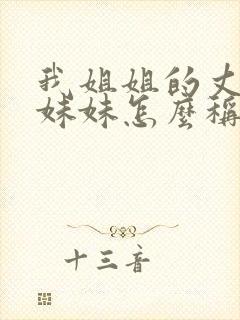 我姐姐的丈
妹妹怎麼稱
十三音